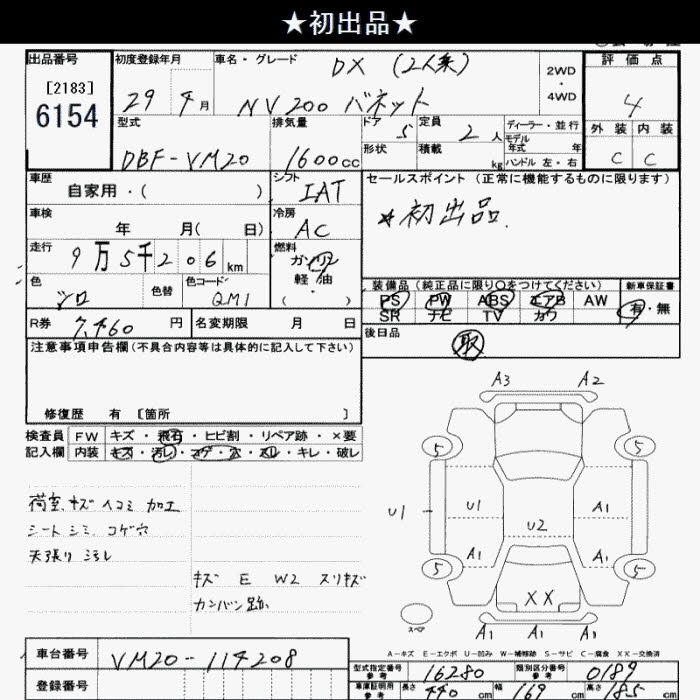 ★初出品★
出品番号 初度登録年月 車名・グレード 評価点
[2183] DX (2人乗) 2WD
6154 29年 4月 NV200 バネット ・ 4WD 4
型式 排気量 ドア 5 定員 2人 ディーラー・並行 外装 内装
DBF-VM20 1600cc 形状 積載 kg モデル年式 年 C C
ハンドル 左・右
車歴 シフト セールスポイント(正常に機能するものに限ります)
自家用・( ) IAT ★初出品.
車検 年 月( 日) 冷房 AC
走行 9万5千206km 燃料 ガソリン
色 シロ 色替 色コード QM1 軽油 ( )
装備品(純正品に限り○をつけてください) 新車保証書
PS PW ABS エアB AW 有・無
SR ナビ TV カワ
R券 7,460円 名変期限 月 日 後日品 取
注意事項申告欄(不具合内容等は具体的に記入して下さい)
修復歴 有 [箇所 ]
検査員 FW キズ・飛石・ヒビ割・リペア跡・×要
記入欄 内装 キズ・汚レ・コゲ・穴・ヌレ・キレ・破レ
荷室、キズ ヘコミ 加工
シート シミ、コゲ穴
天張り 汚レ
キズ E W2 スリキズ
カンバン跡
A3 A2
5 5
U1 U1 A1
U2
A1 A1
5 5
XX
スペア
A1 A1 A1
A-キズ E-エクボ U-凹み W-補修跡 S-サビ C-腐食 XX-交換済
車台番号 VM20-114208
型式指定番号 参考 16280 類別区分番号 参考 0189
登録番号
車庫証明用 参考 長さ 440cm 幅 169cm 高さ 185cm